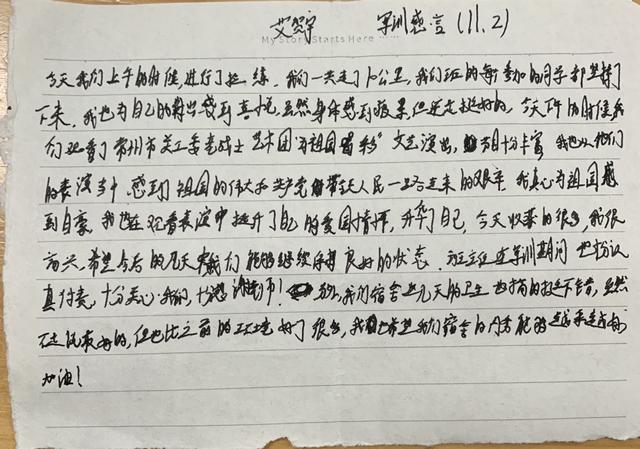 艾 宇 军训感言(11.2)
My Story Starts Here
今天我们上午的时候,进行了拉练。我们一共走了10公里,我们班的每参加的同学都坚持了
下来,我也为自己的 感到喜悦,虽然身体感到疲累,但还是挺好的,今天下午的时候我
们观看了常州市关工委老战士艺术团"为祖国喝彩"文艺演出,节目十分丰富 我也从他们
的表演当中 感到祖国的伟大和共产党带领人民一路走来的艰辛 我真心为祖国感
到自豪,我也在观看表演中提升了自己的爱国情怀,升华了自己,今天收获的很多,我很
高兴,希望今后的几天我们能够继续保持良好的状态,班主任在军训期间也十分认
真付责,十分关心我们, 谢谢老师! 我们宿舍这几天的卫生也搞的挺不错,虽然
不是优秀好的,但也比之前的环境好了很多,我也希望我们宿舍的同学能够越来越好
加油!